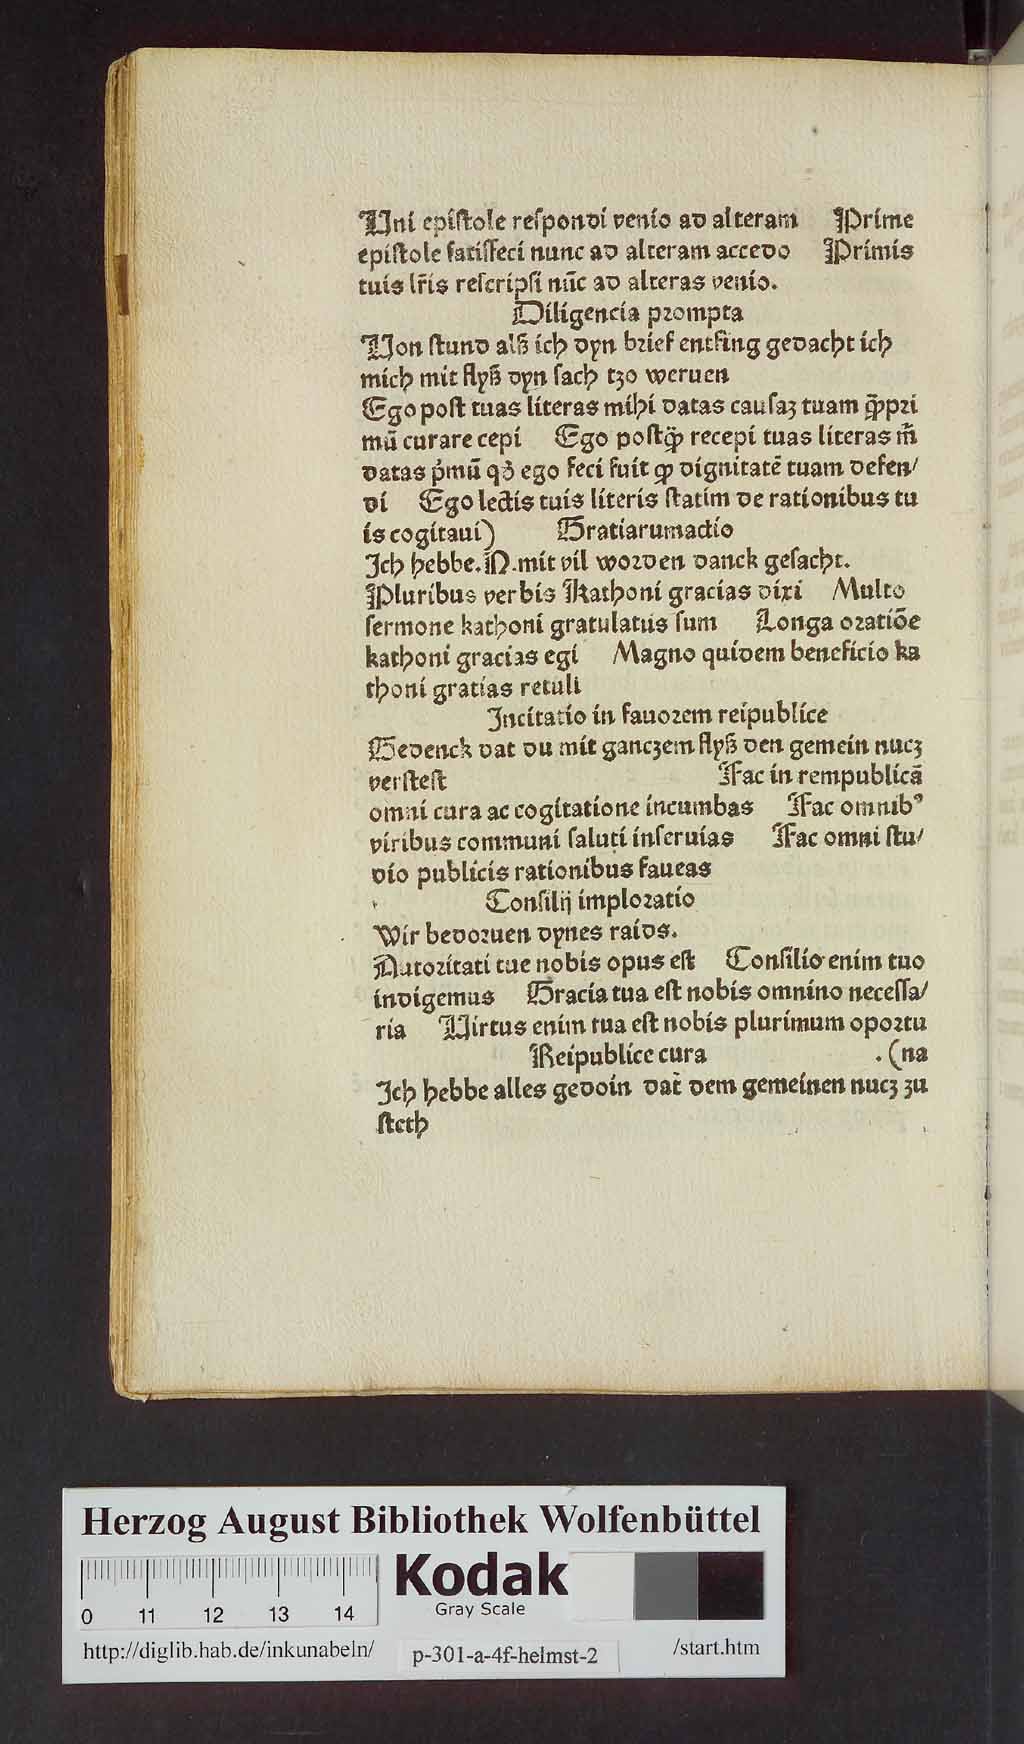 Uni epistole respondi venio ad alteram Prime
epistole satisfeci nunc ad alteram accedo Primis
tuis lr̄is rescripsi nūc ad alteras venio.
Diligencia prompta
Von stund alß ich dyn brief entfing gedacht ich
mich mit flyß dyn sach tzo weruen
Ego post tuas literas mihi datas causaz tuam q̄ꝓpri
mū curare cepi Ego postq̄ recepi tuas literas m̄
datas p̄mū qꝫ ego feci fuit ꝙ dignitatē tuam defen/
di Ego lectis tuis literis statim de rationibus tu
is cogitaui) Gratiarumactio
Ich hebbe. N. mit vil worden danck gesacht.
Pluribus verbis Kathoni gracias dixi Multo
sermone kathoni gratulatus sum Longa oratiōe
kathoni gracias egi Magno quidem beneficio ka
thoni gratias retuli
Incitatio in fauorem reipublice
Gedenck dat du mit ganczem flyß den gemein nucz
verstest Fac in rempublicā
omni cura ac cogitatione incumbas Fac omnibꝰ
viribus communi saluti inseruias Fac omni stu/
dio publicis rationibus faueas
Consilij imploratio
Wir bedoruen dynes raids.
Autoritati tue nobis opus est Consilio enim tuo
indigemus Gracia tua est nobis omnino necessa/
ria Virtus enim tua est nobis plurimum oportu
Reipublice cura . (na
Ich hebbe alles gedoin dat dem gemeinen nucz zu
steth
Herzog August Bibliothek Wolfenbüttel
Kodak
Gray Scale
0 11 12 13 14
http://diglib.hab.de/inkunabeln/ p-301-a-4f-helmst-2 /start.htm